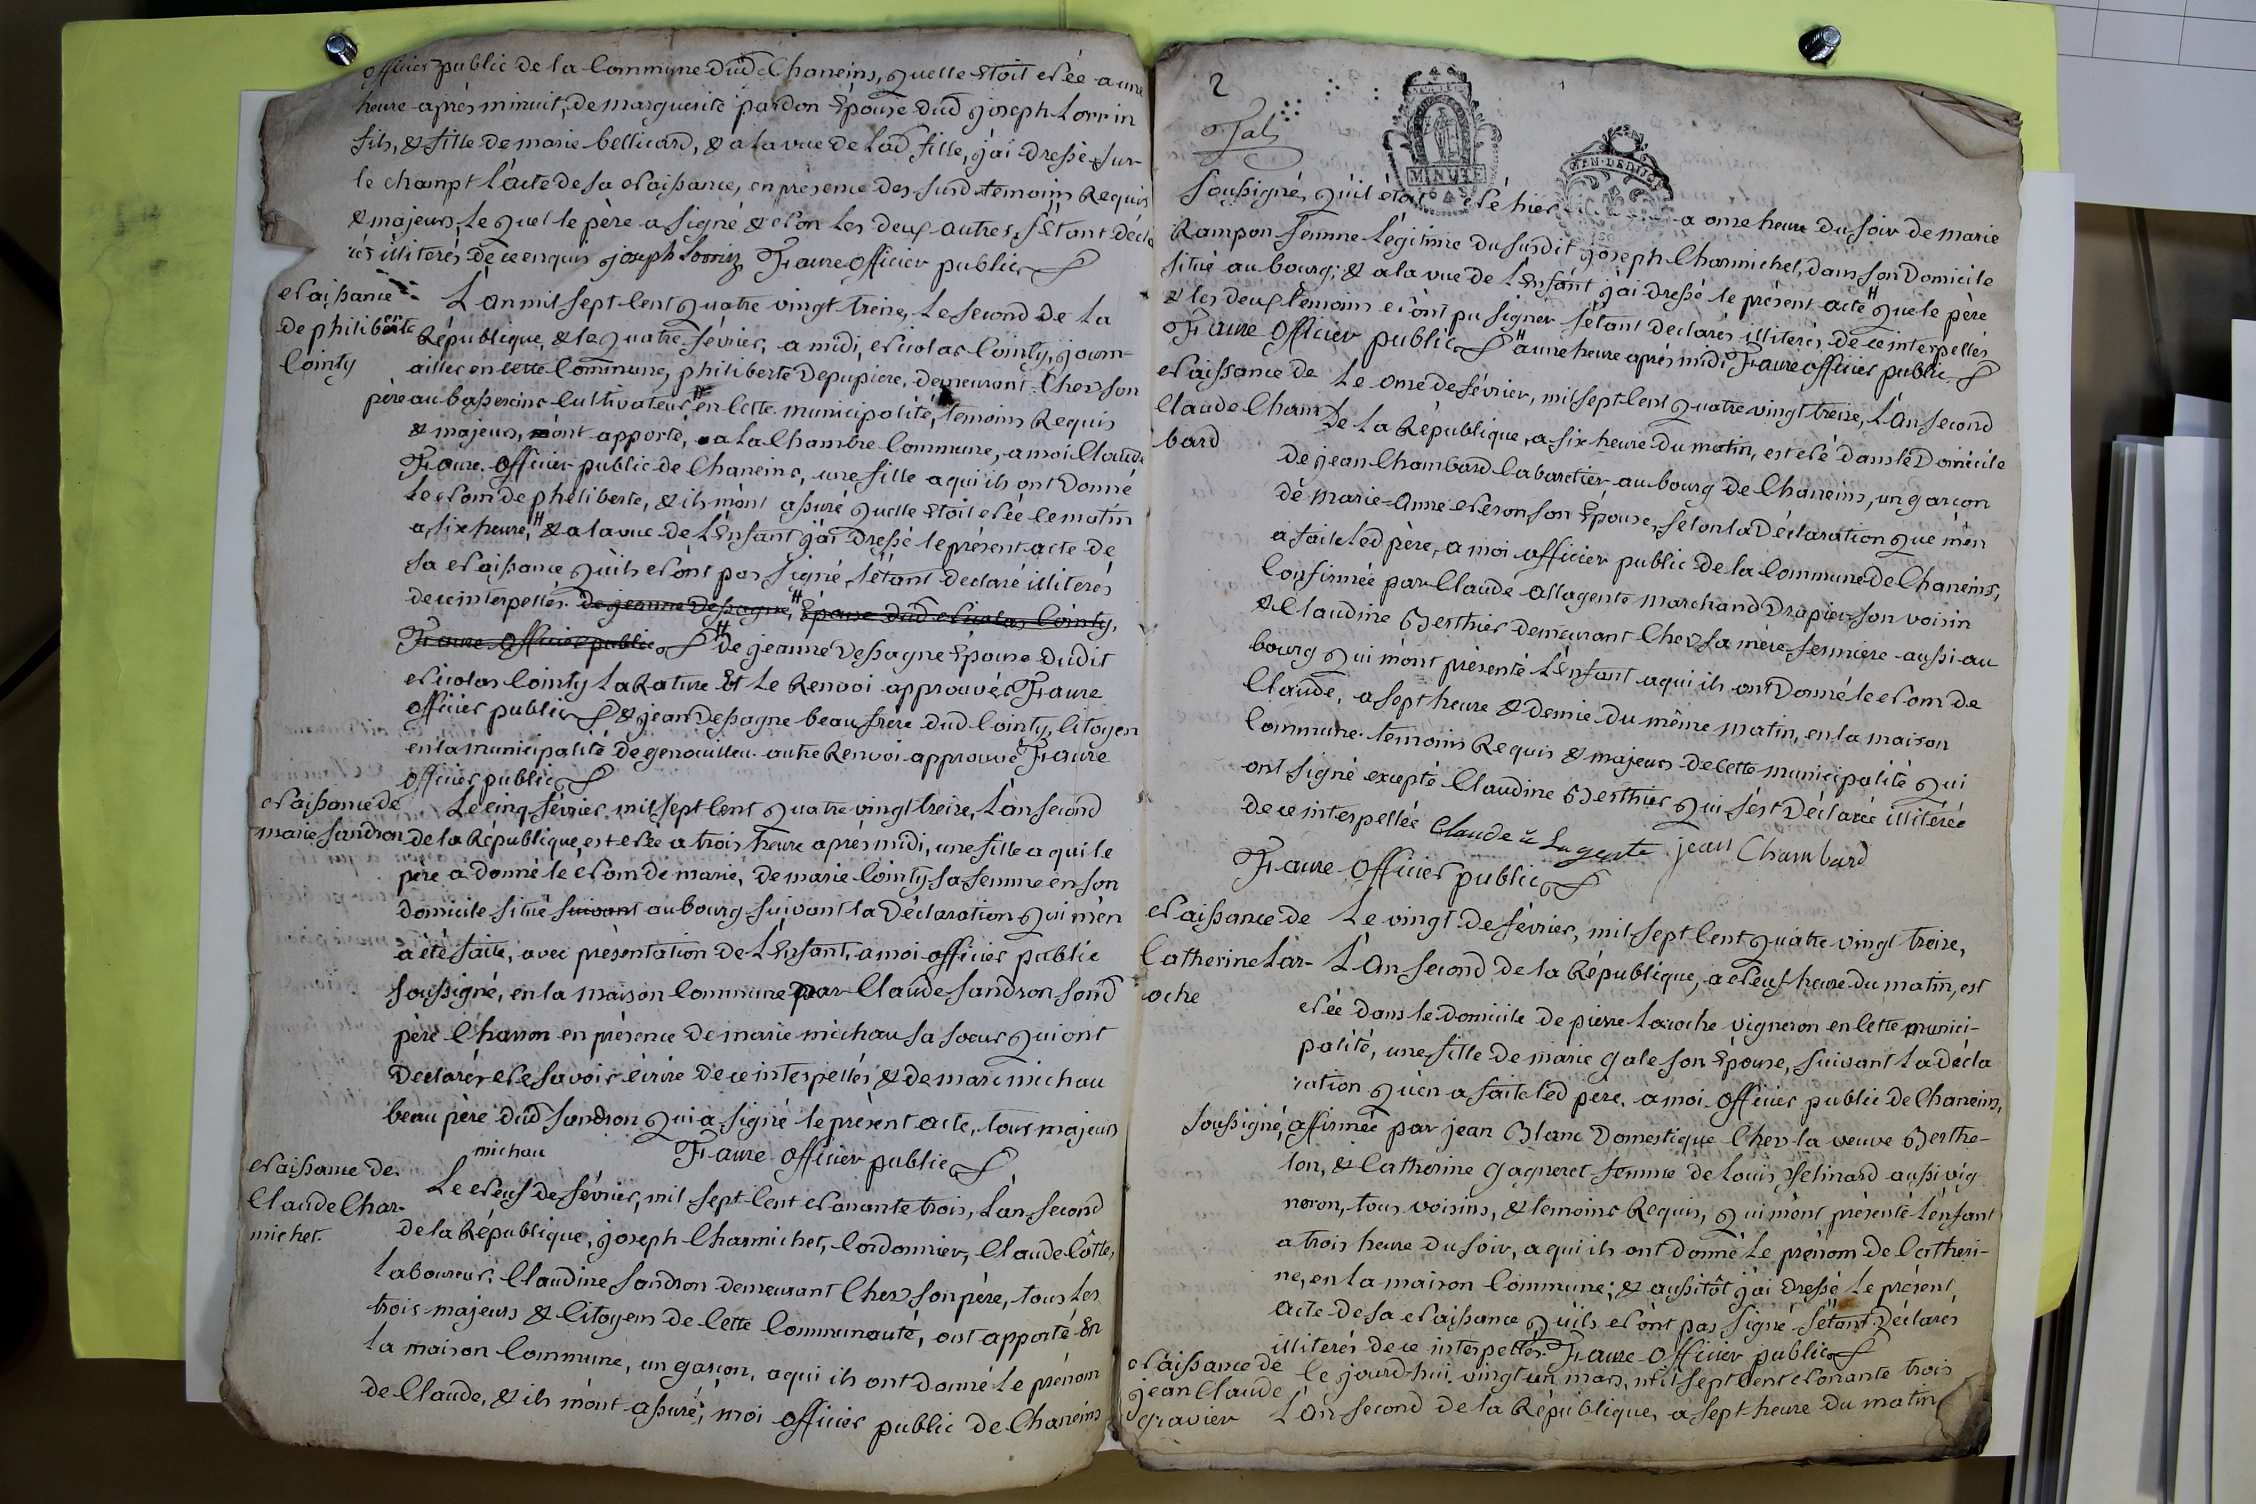 officier public de la Commune dud Chaneins, quelle Etoit Née a une
heure aprés minuit, de marguerite pardon Epouse dud joseph Lorrin
fils, & fille de marie bellicard, & a la vue de lad fille, j'ai dressé sur
le champt l'acte de sa Naissance, en présence des susd temoins Requis
& majeurs, le quel le père a signé & Non les deux autres, s'Etant décla
rés illiterés de ce enquis joseph Lorrin Faure officier public
Naissance
de philiberte
Cointy
L'an mil sept Cent quatre vingt treize, le second de la
République, & le quatre février, a midi, Nicolas Cointy, journ-
aillier en Cette Commune, philiberte Depupiere, demeurant Chez son
père au bassereins Cultivateur H en Cette municipalité, temoins Requis
& majeurs, m'ont apporté, a la Chambre Commune, a moi Claude
Faure officier public de Chaneins, une fille a qui ils ont Donné
le Nom de pheliberte, & ils m'ont assuré quelle Etoit Née le matin
a six heure, H & a la vue de L'Enfant j'ai dressé le présent acte de
sa Naissance quils N'ont pas signé s'étant declaré illiterés
de ce interpellés. de jeanne Dessagne, H Epouse dud Nicolas Cointy,
Faure officier public H de jeanne Dessagne Epouse dudit
Nicolas Cointy La Rature Et Le Renvoi approuvés Faure
officier public & jean Dessagne beau frere dud Cointy, Citoyen
en la municipalité de genouilleu autre Renvoi approuvé Faure
officier public
Naissance de
marie sandron
Le cinq février mil sept Cent quatre vingt treize, L'an second
de la République, est Née a trois heure aprés midi, une fille a qui le
père a donné le Nom de marie, de marie Cointy sa femme en son
domicile situé suivant au bourg suivant la Déclaration qui m'en
a été faite, avec présentation de L'Enfant, a moi officier public
soussigné, en la maison Commune par Claude sandron sond
père Charron en présence de marie michau sa sœur qui ont
Déclarés Ne savoir écrire de ce interpellés & de marc michau
beau père dud sandron qui a signé le présent acte, tous majeurs
michau Faure officier public
Naissance de
Claude Char-
michet.
Le Neuf de février, mil sept Cent Nonante trois, L'an second
de la République, joseph Charmichet, Cordonnier, Claude Côtte,
Laboureur, Claudine sandron demeurant Chez son père, tous les
trois majeurs & Citoyens de Cette Communauté, ont apporté En
la maison Commune, un garçon, a qui ils ont donné le prénom
de Claude, & ils m'ont assuré, moi officier public de Chaneins
2
MINUTE
soussigné, qu'il étoit Né hier a onze heure du soir de marie
Rampon femme Légitime du susdit joseph Charmichet, dans son Domicile
situé au bourg; & a la vue de L'Enfant j'ai dressé le présent acte H que le père
& les deux temoins N'ont pu signer s'étant declarés illiterés de ce interpellés
Faure officier public H a une heure aprés midi Faure officier public
Naissance de
Claude Cham
bard
Le onze de février, mil sept Cent quatre vingt treize, L'An second
de la République, a six heure du matin, est Né dans le Domicile
de jean Chambard Cabaretier au bourg de Chaneins, un garçon
de marie-Anne Neron, son Epouse, selon la Déclaration que m'en
a faite led père, a moi officier public de la Commune de Chaneins,
Confirmée par Claude Allagente marchand Drapier son voisin
& Claudine Berthier demeurant Chez sa mère fermiere aussi au
bourg qui m'ont présenté L'Enfant a qui ils ont Donné le Nom de
Claude, a sept heure & demie du même matin, en la maison
Commune. temoins Requis & majeurs de Cette municipalité qui
ont signé excepté Claudine Berthier qui s'est Déclarée illitérée
de ce interpellée Claude a Lagente jean Chambard
Faure officier public
Naissance de
Catherine Lar-
oche
Le vingt de février, mil sept Cent quatre vingt treize,
L'An second de la République, a Neuf heure du matin, est
Née dans le domicile de pierre Laroche vigneron en Cette munici-
palité, une fille de marie gale son Epouse, suivant la Décla
ration qu'en a faite led père, a moi officier public de Chaneins,
soussigné, affirmée par jean Blanc Domestique Chez la veuve Berthe-
lon, & Catherine gagneret femme de Louis felinard aussi vig
neron, tous voisins, & temoins Requis, qui m'ont présenté l'enfant
a trois heure du soir, a qui ils ont donné le prénom de Catheri-
ne, en la maison Commune; & aussitôt j'ai dressé le présent
acte de sa Naissance qu'ils N'ont pas signé s'étant Déclarés
illiterés de ce interpellés. Faure officier public
Naissance de
jean Claude
gravier
Ce jourd-hui vingt un mars, mil sept Cent Nonante trois
L'An second de la République, a sept heure du matin